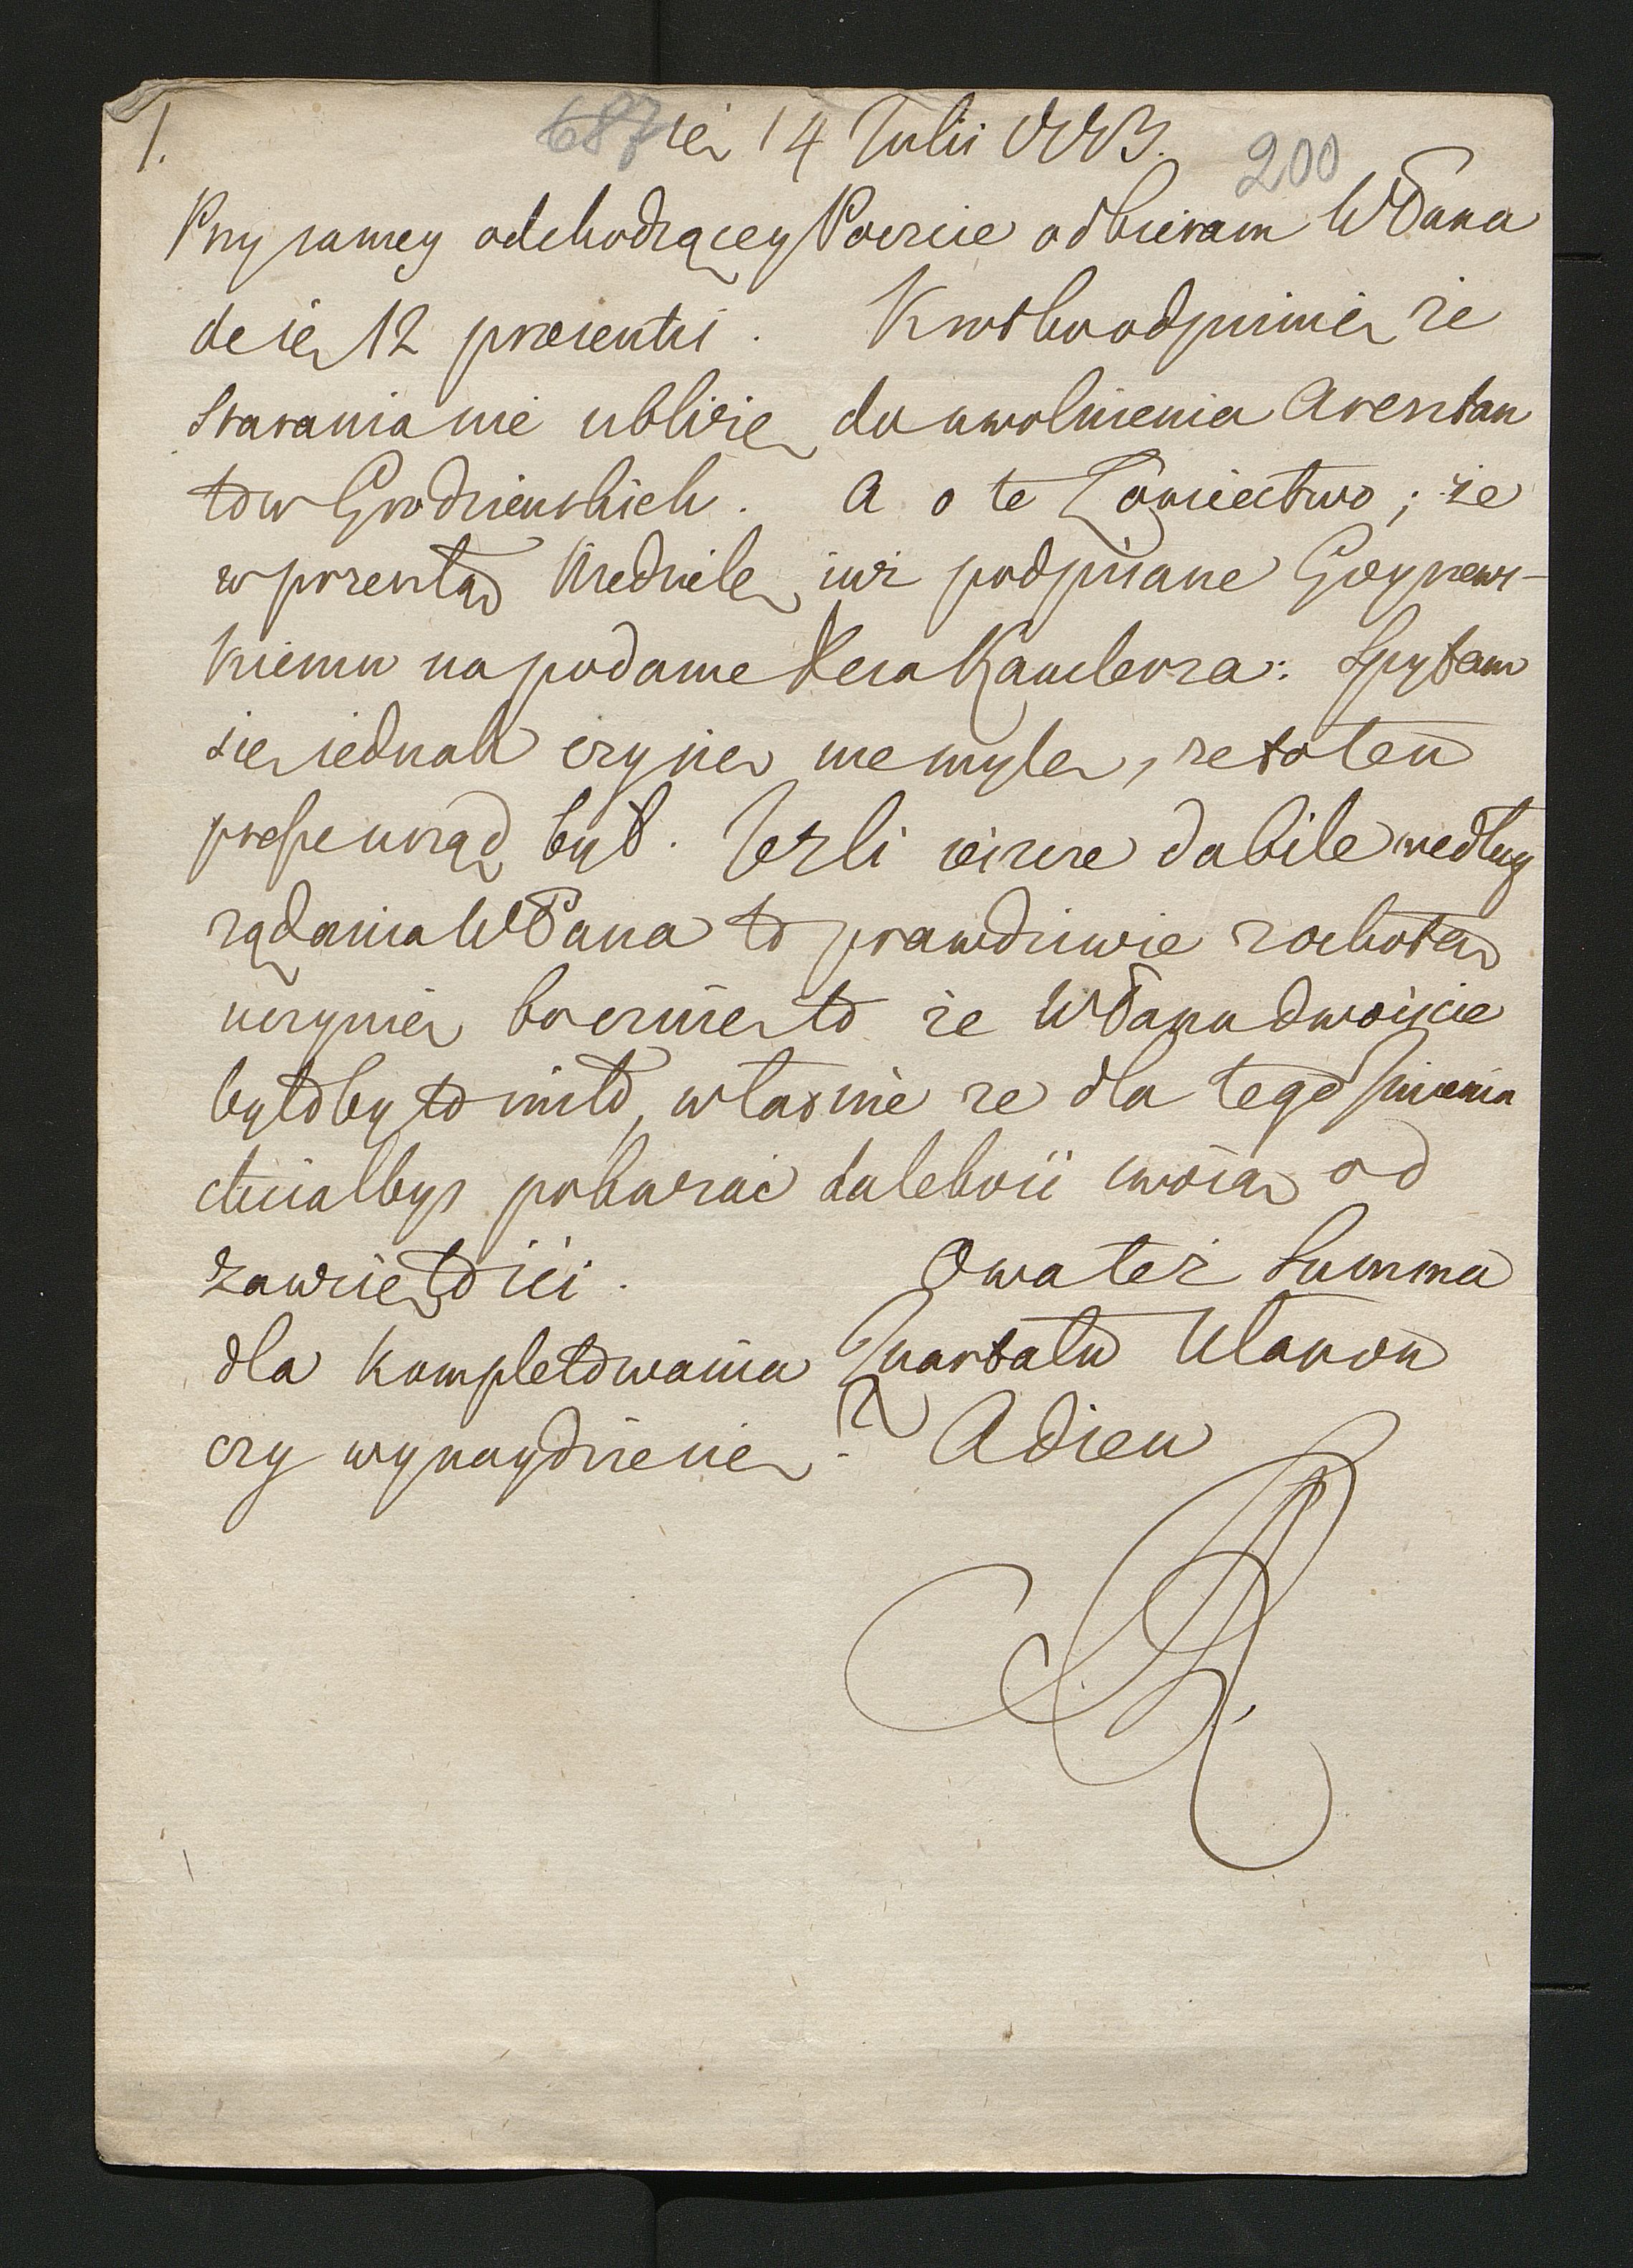 1.
687 14 Julii 1783. 200
Przy samey odchodzącey Poczcie odbieram WPana
de 12 praesentis. Krotko odpiszę że
Starania nie ubliżę do uwolnienia Aresztan
tow Grodzienskich. A o te Łowiectwo; że
w przeszłą Niedzielę iuż podpisane
kiemu na podanie Xcia Kanclerza: Spytam
się iednak czy się nie mylę, że to ten
urząd był. Jeżli ieszcze dabile według
żądania WPana to prawdziwie z ochotą
uczynię bo czuię to że WPanu dwoiście
byłoby to miło, własnie że dla tego
chciałbys pokazać dalekość swoią od
zawziętości. Owa też Summa
dla kompletowania Quartału Ułanow
czy wynaydzie się? Adieu